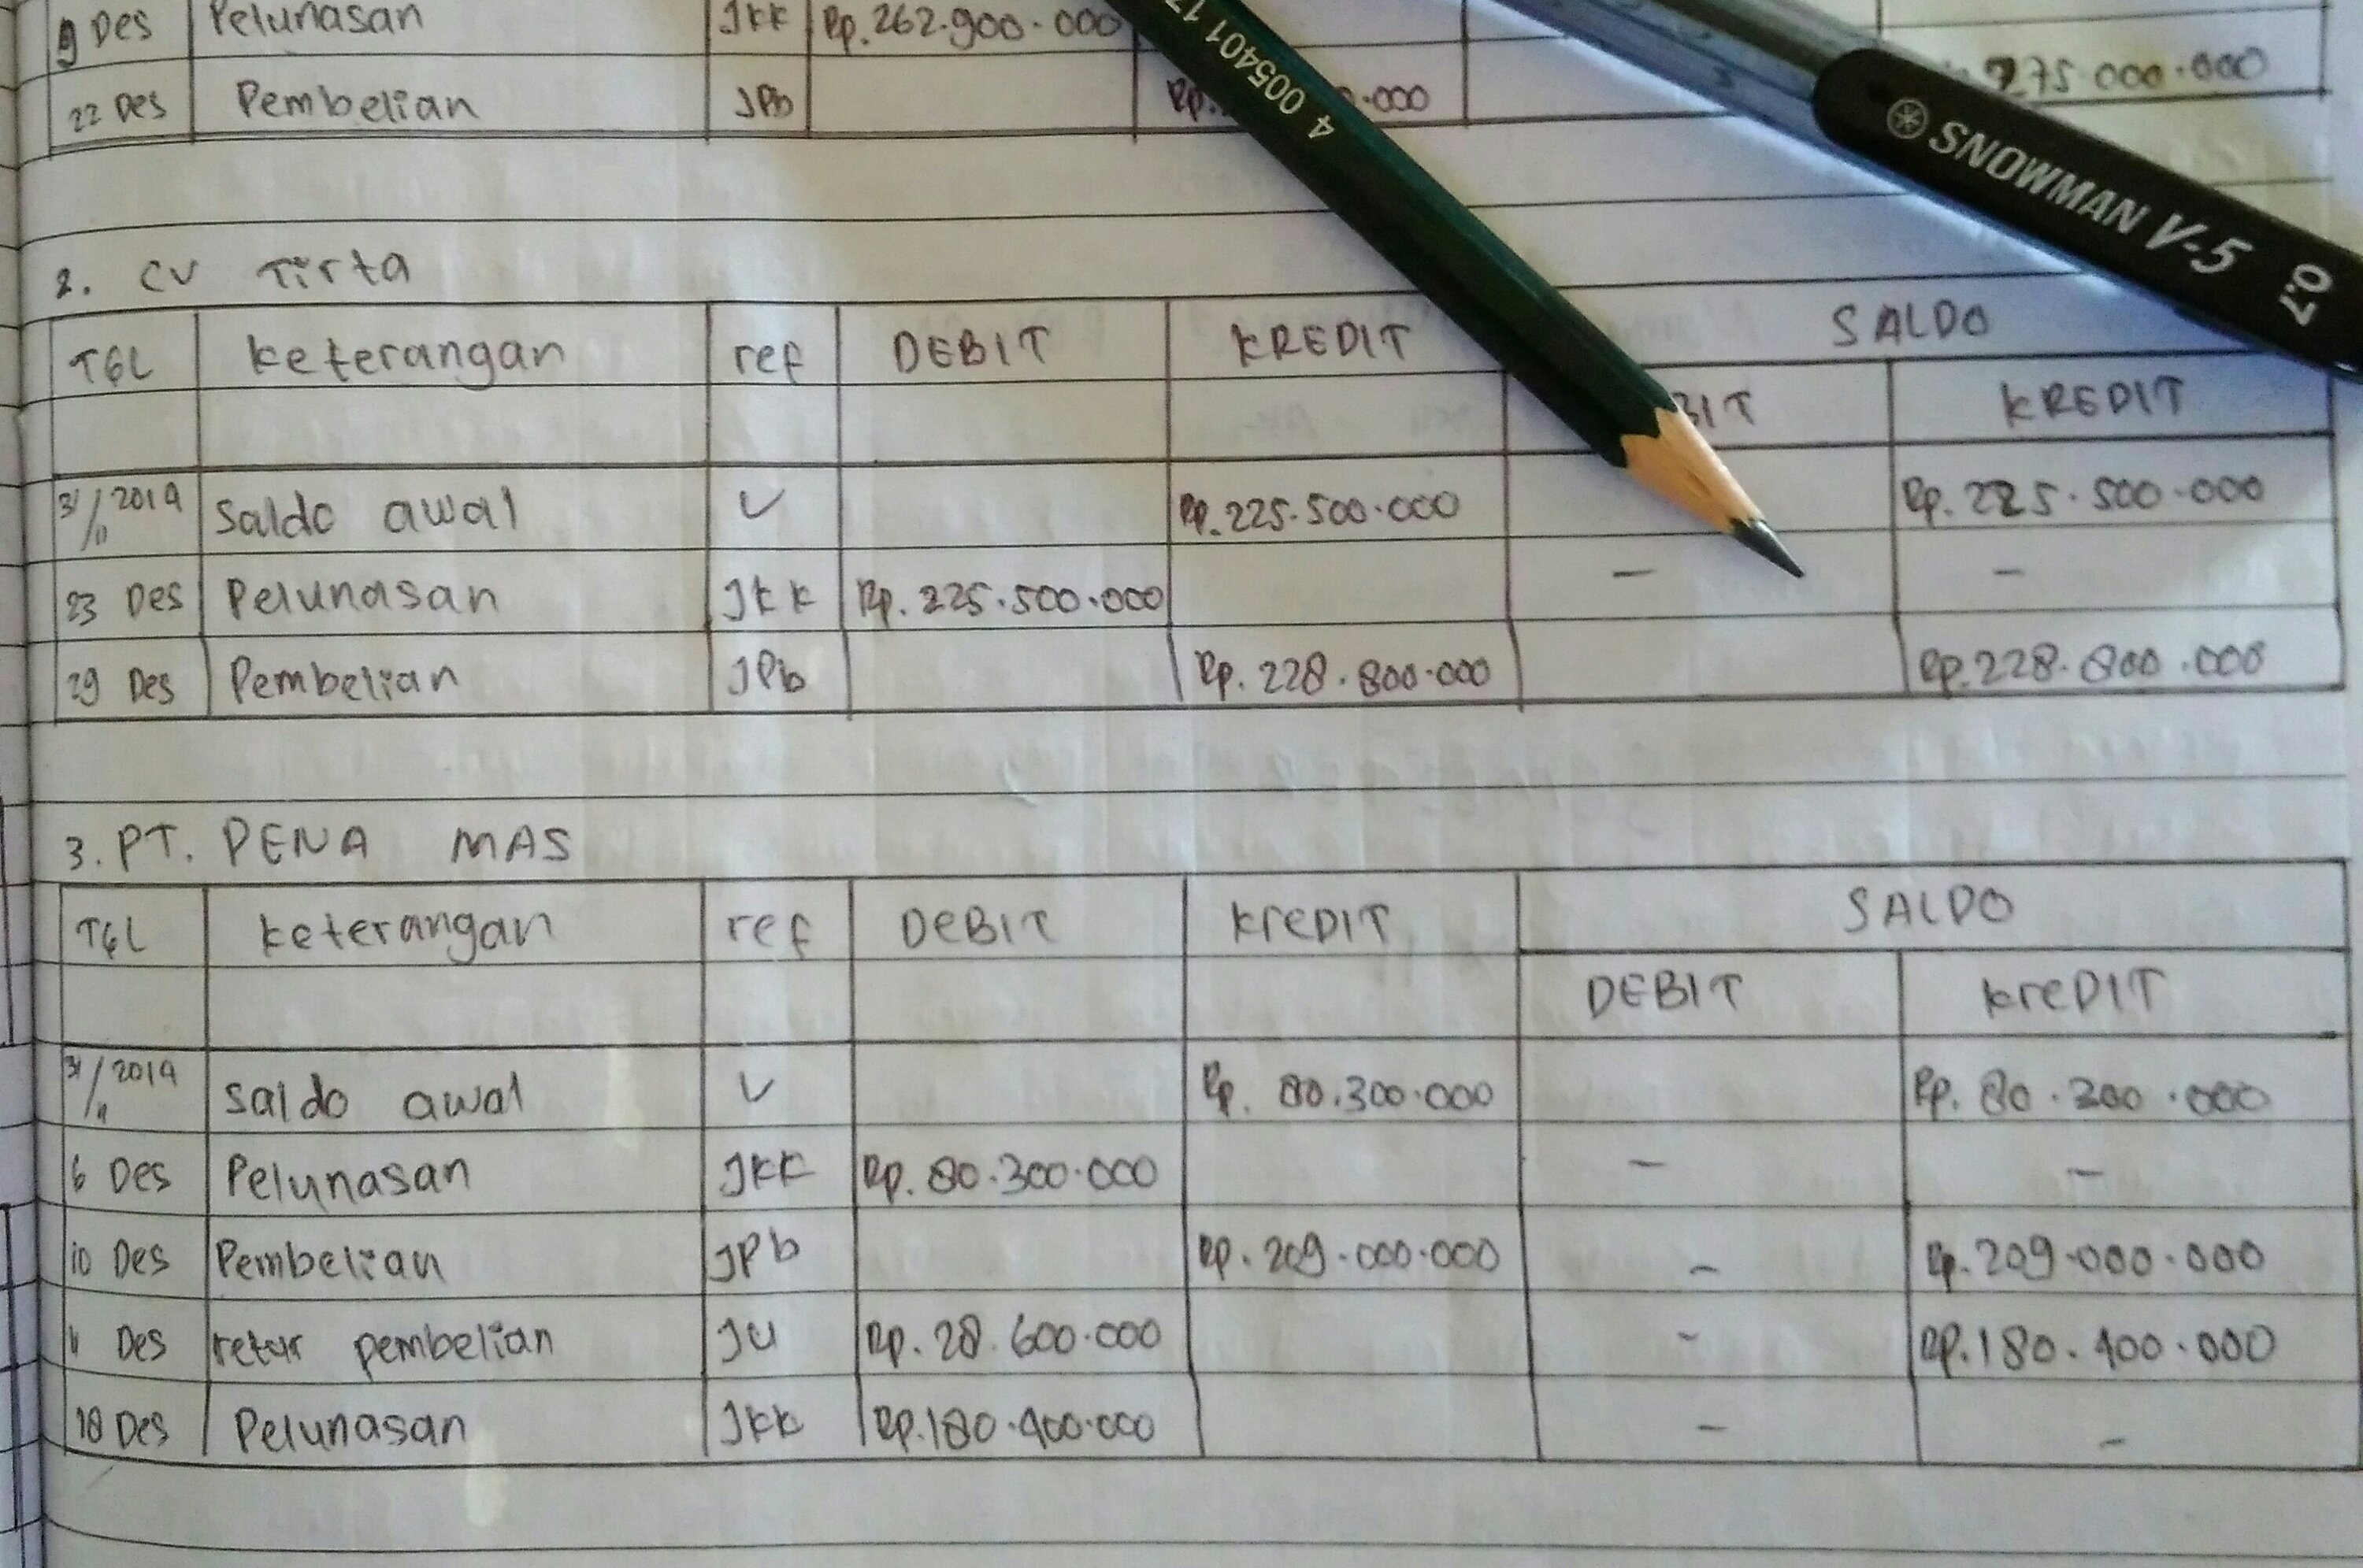 9 Des Pelunasan JKK Rp. 262.900.000
275.000.000
22 Des Pembelian JPb Rp. .000
4 005401 17
SNOWMAN V-5 0.7
2. CV Tirta
TGL keterangan ref DEBIT KREDIT SALDO
BIT KREDIT
31/11 2019 Saldo awal ✓ Rp. 225.500.000 Rp. 225.500.000
23 Des Pelunasan JKK Rp. 225.500.000 - -
29 Des Pembelian JPb Rp. 228.800.000 Rp. 228.800.000
3. PT. PENA MAS
TGL keterangan ref DEBIT kreDIT SALDO
DEBIT kreDIT
31/11 2019 Saldo awal ✓ Rp. 80.300.000 Rp. 80.300.000
6 Des Pelunasan JKK Rp. 80.300.000 - -
10 Des Pembelian JPb Rp. 209.000.000 - Rp. 209.000.000
11 Des retur pembelian JU Rp. 28.600.000 - Rp. 180.400.000
18 Des Pelunasan JKK Rp. 180.400.000 - -